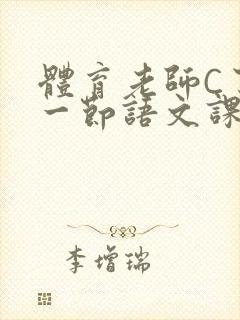 體育老師C
一節語文課
李增瑞